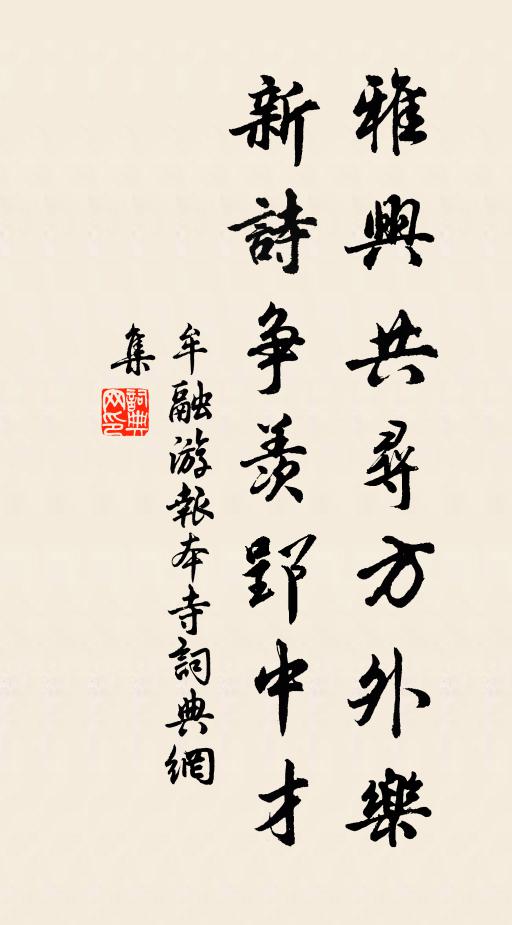 雅興共尋方外樂
新詩争羨郢中才
牟融游報本寺詞典網
集
詞典
网印